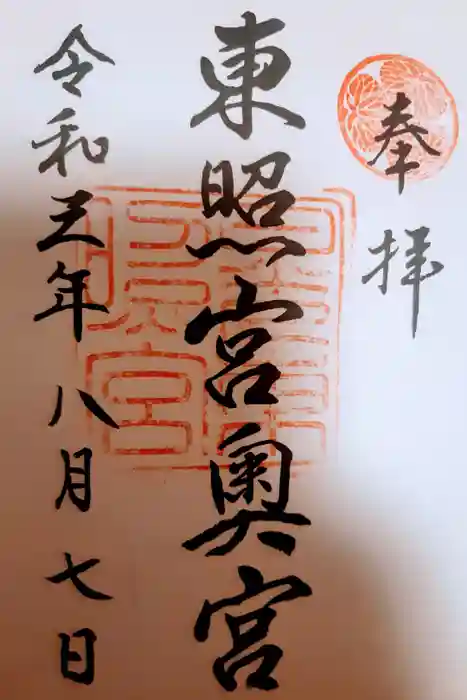 奉拝
東照宮奥宮
令和三年八月七日